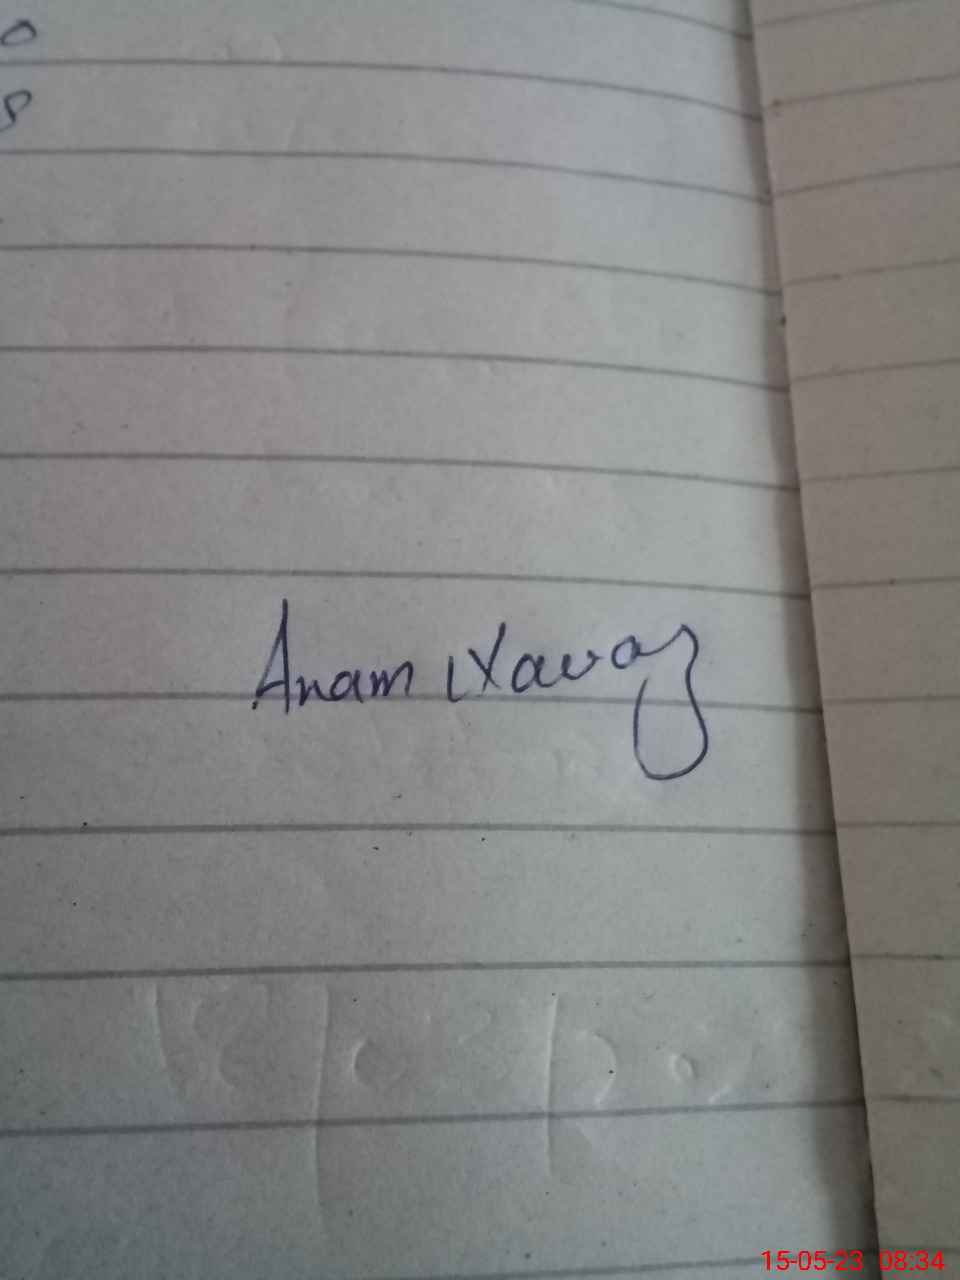 Anam Nawaz
15-05-23 08:34